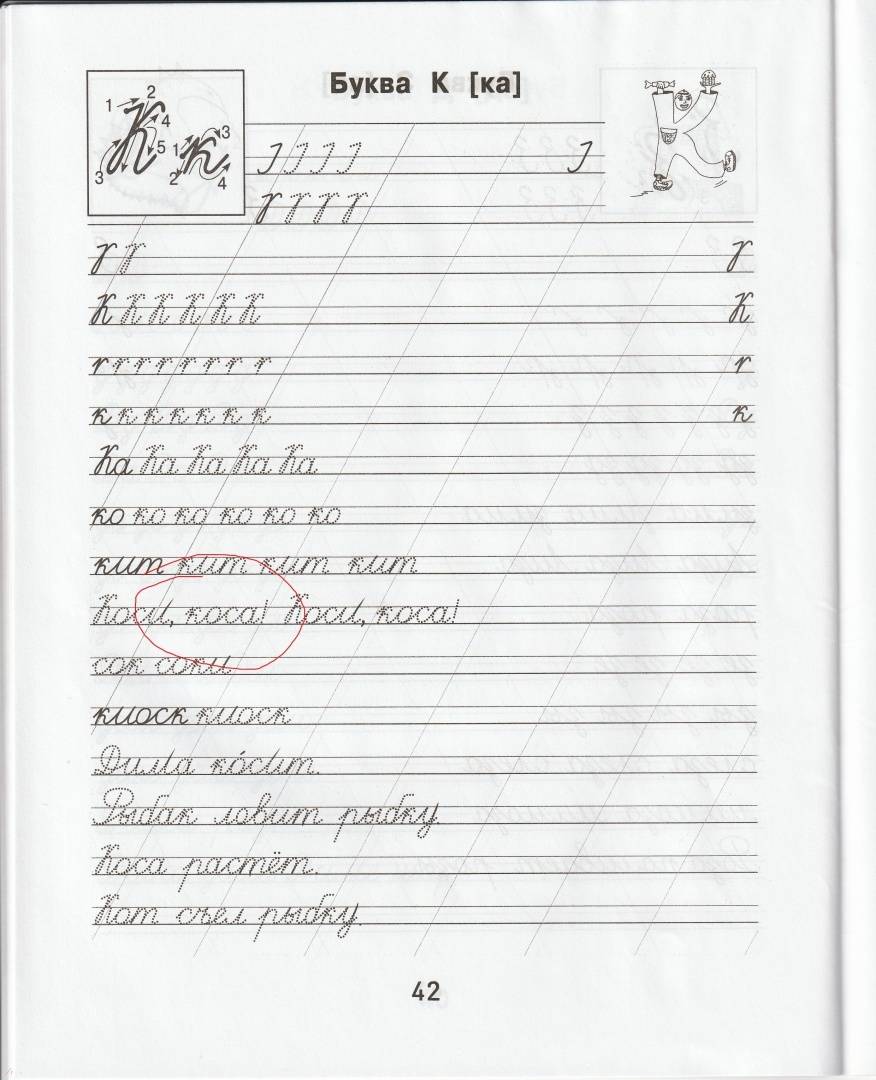 Буква К [ка]
1 2 3 4 5
1 2 3 4
К К К К К К К
к к к к к к к к
Ка Ка Ка Ка Ка
ко ко ко ко ко ко
кит кит кит кит
Коси, коса! Коси, коса!
сок соки
киоск киоск
Дима ко́сит.
Рыбак ловит рыбку.
Коса растёт.
Кот съел рыбку.
42